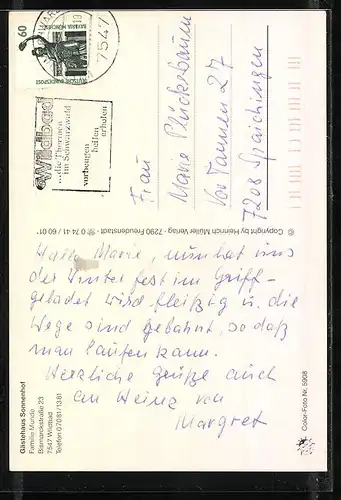 60
DEUTSCHE BUNDESPOST
BAVARIA MÜNCHEN
7547
Wildbad
...die Thermen
im Schwarzwald
vorbeugen
heilen
erholen
Frau
Marie
Vor Tannen 27
7208 Spaichingen
© Copyright by Heinrich Müller Verlag · 7290 Freudenstadt · ☏ 0 74 41 / 60 01
Hallo Marie, nun hat uns
der Winter fest im Griff
geladet wird fleißig u. die
Wege sind gebahnt, so daß
man laufen kann.
Herzliche Grüße auch
an Heinz von
Margret
Gästehaus Sonnenhof
Familie Munde
Bismarckstraße 23
7547 Wildbad
Telefon 07081/1381
Color-Foto Nr. 5908